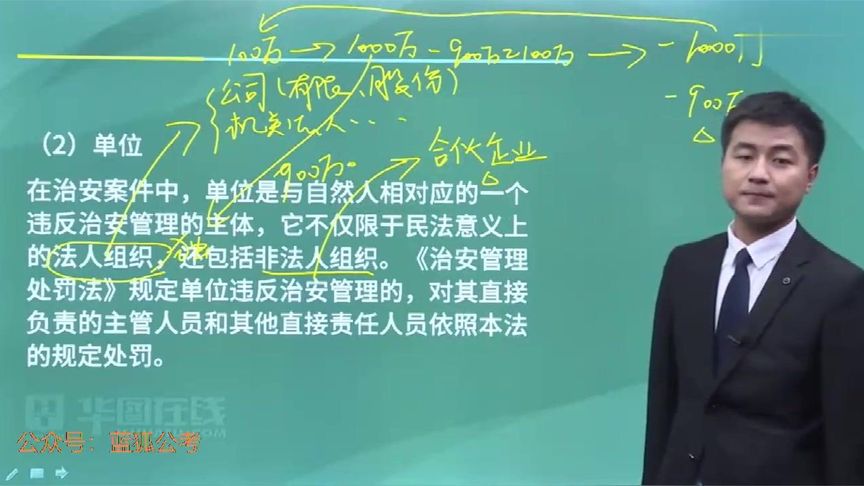 100万 → 1000万 - 900万=100万 → -1000万
公司(有限、股份) -900万
机关法人……
(2)单位 合伙企业
900万。
在治安案件中，单位是与自然人相对应的一个
违反治安管理的主体，它不仅限于民法意义上
的法人组织，还包括非法人组织。《治安管理
处罚法》规定单位违反治安管理的，对其直接
负责的主管人员和其他直接责任人员依照本法
的规定处罚。
华图在线
公众号：蓝狐公考